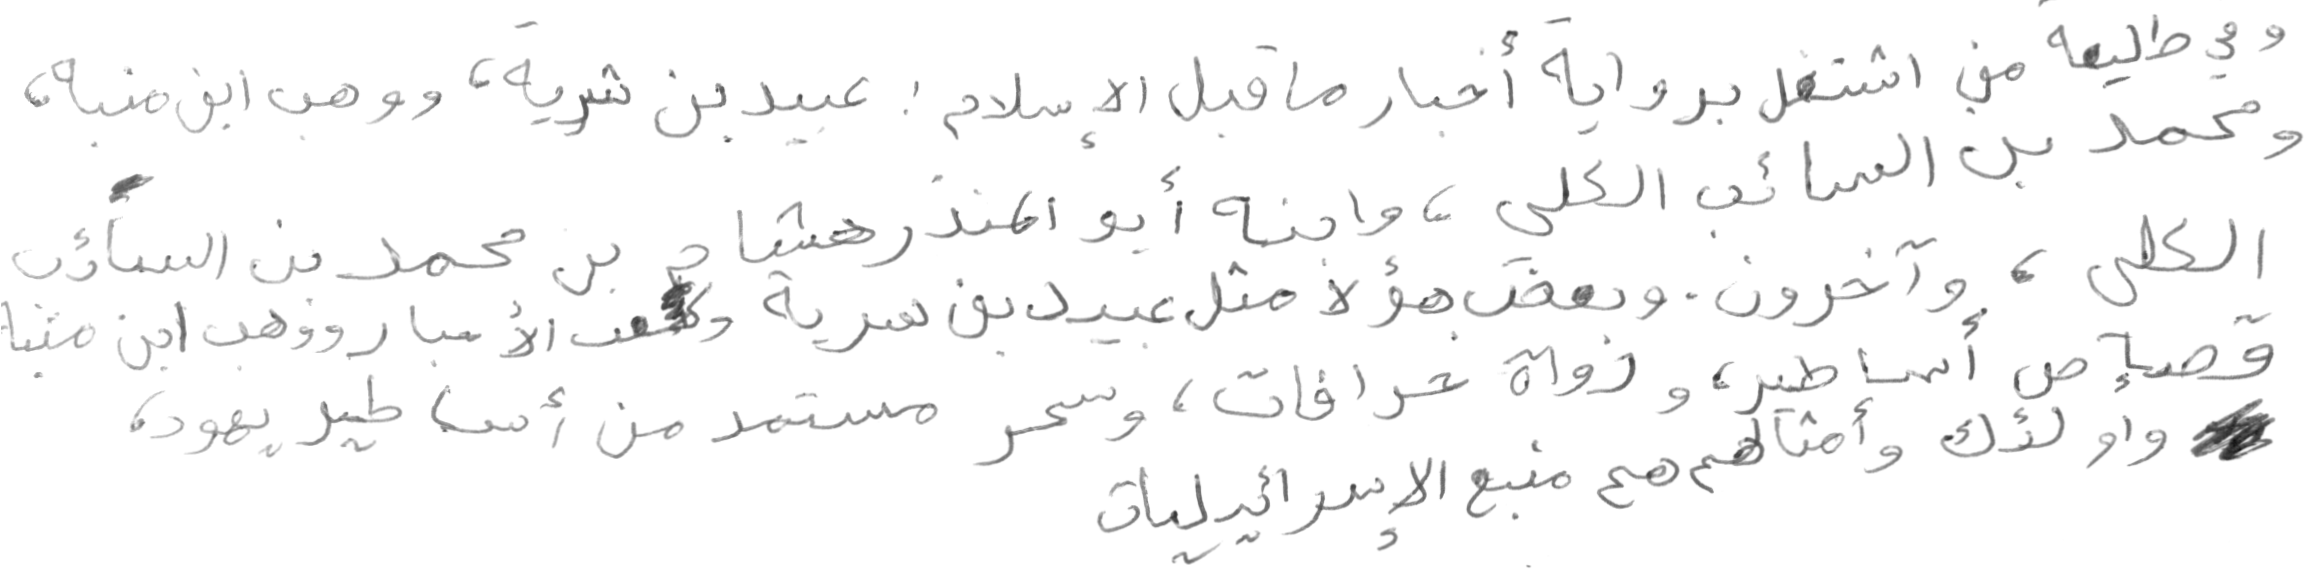 وفي طليعة من اشتغل برواية أخبار ماقبل الإسلام: عبيد بن شرية، ووهب ابن منبه،
ومحمد بن السائب الكلبي، وابنه أبو المنذر هشام بن محمد بن السائب
الكلبي، وآخرون. وبعض هؤلاء مثل عبيد بن سرية وكعب الأحبار ووهب ابن منبه
قصاص أساطير، ورواة خرافات، وسحر مستمد من أساطير يهود،
واولئك وأمثالهم هم منبع الإسرائيليات